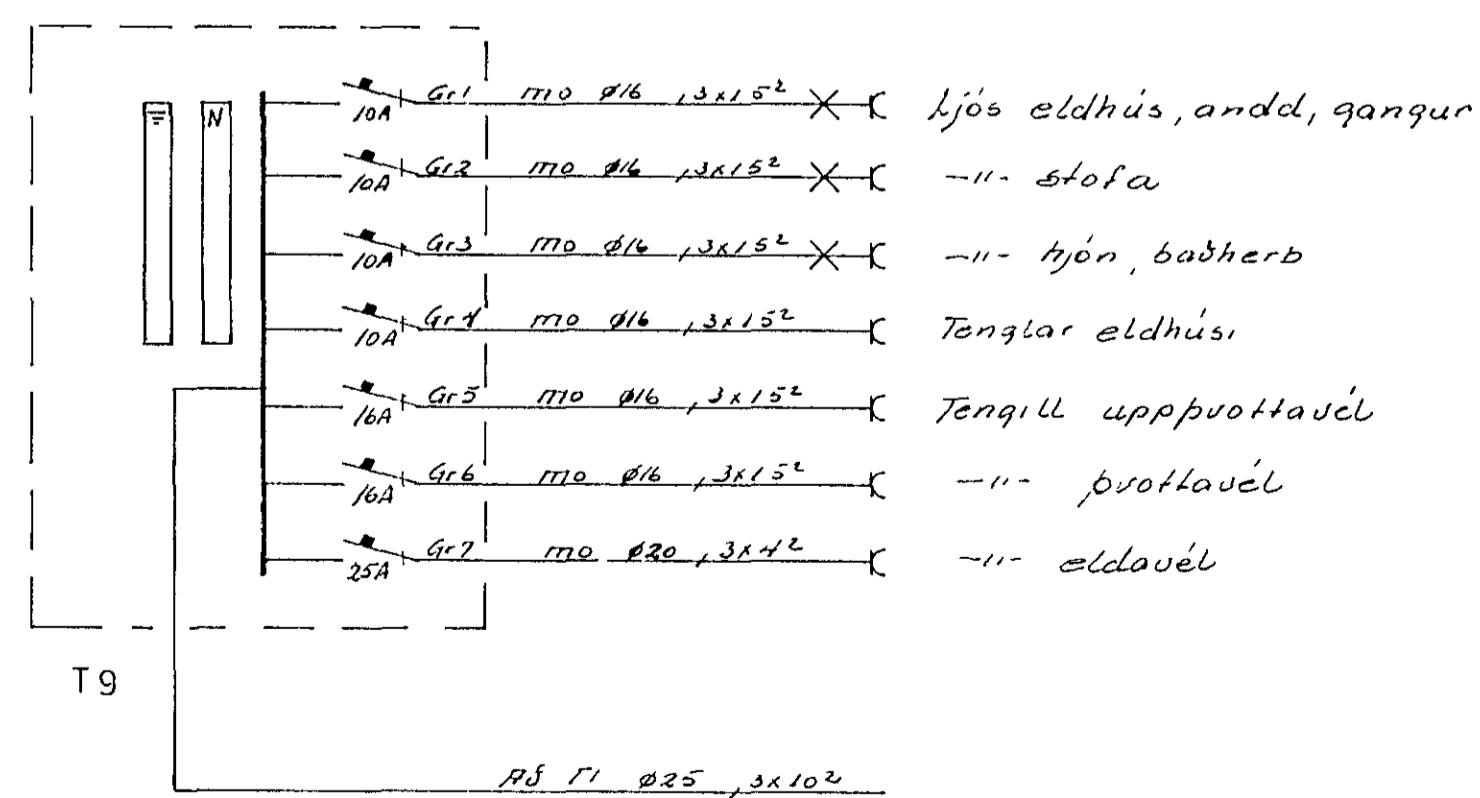 Gr1 mo ø16 , 3x15² Ljós eldhús, andd, gangur
10A
N
Gr2 mo ø16 , 3x15² -"- stofa
10A
Gr3 mo ø16 , 3x15² -"- hjón, baðherb
10A
Gr4 mo ø16 , 3x15² Tenglar eldhúsi
10A
Gr5 mo ø16 , 3x15² Tengill uppþvottavél
16A
Gr6 mo ø16 , 3x15² -"- þvottavél
16A
Gr7 mo ø20 , 3x4² -"- eldavél
25A
T9
Af T1 ø25 , 3x10²